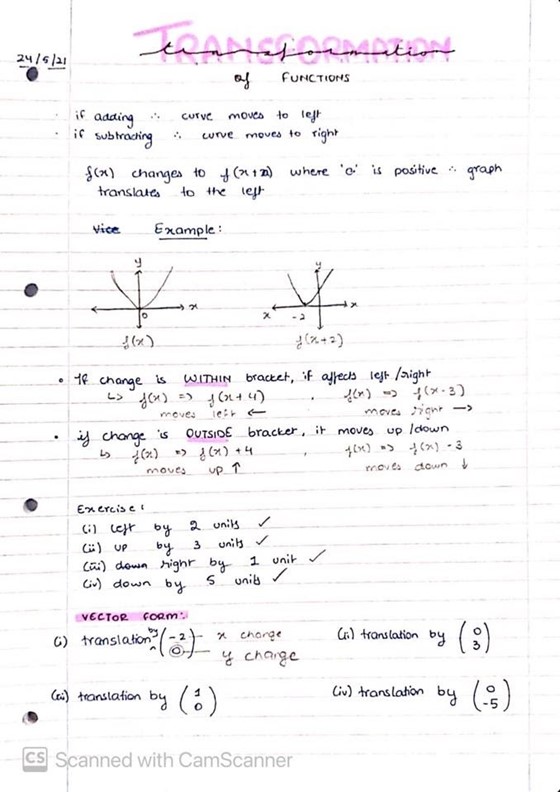 TRANSFORMATION
transformation
24/5/21
of FUNCTIONS
if adding ∴ curve moves to left
if subtracting ∴ curve moves to right
f(x) changes to f(x+a) where 'a' is positive ∴ graph
translates to the left
Vice Example:
y
x
0
f(x)
y
x
x
-2
f(x+2)
• If change is WITHIN bracket, if affects left/right
↳ f(x) => f(x+4) , f(x) => f(x-3)
moves left ← moves right →
• if change is OUTSIDE bracket, it moves up/down
↳ f(x) => f(x)+4 , f(x) => f(x)-3
moves up ↑ moves down ↓
Exercise:
(i) left by 2 units ✓
(ii) up by 3 units ✓
(iii) down right by 1 unit ✓
(iv) down by 5 units ✓
VECTOR FORM:
(i) translation by (-2 0) x change y change
(ii) translation by (0 3)
(iii) translation by (1 0)
(iv) translation by (0 -5)
CS Scanned with CamScanner